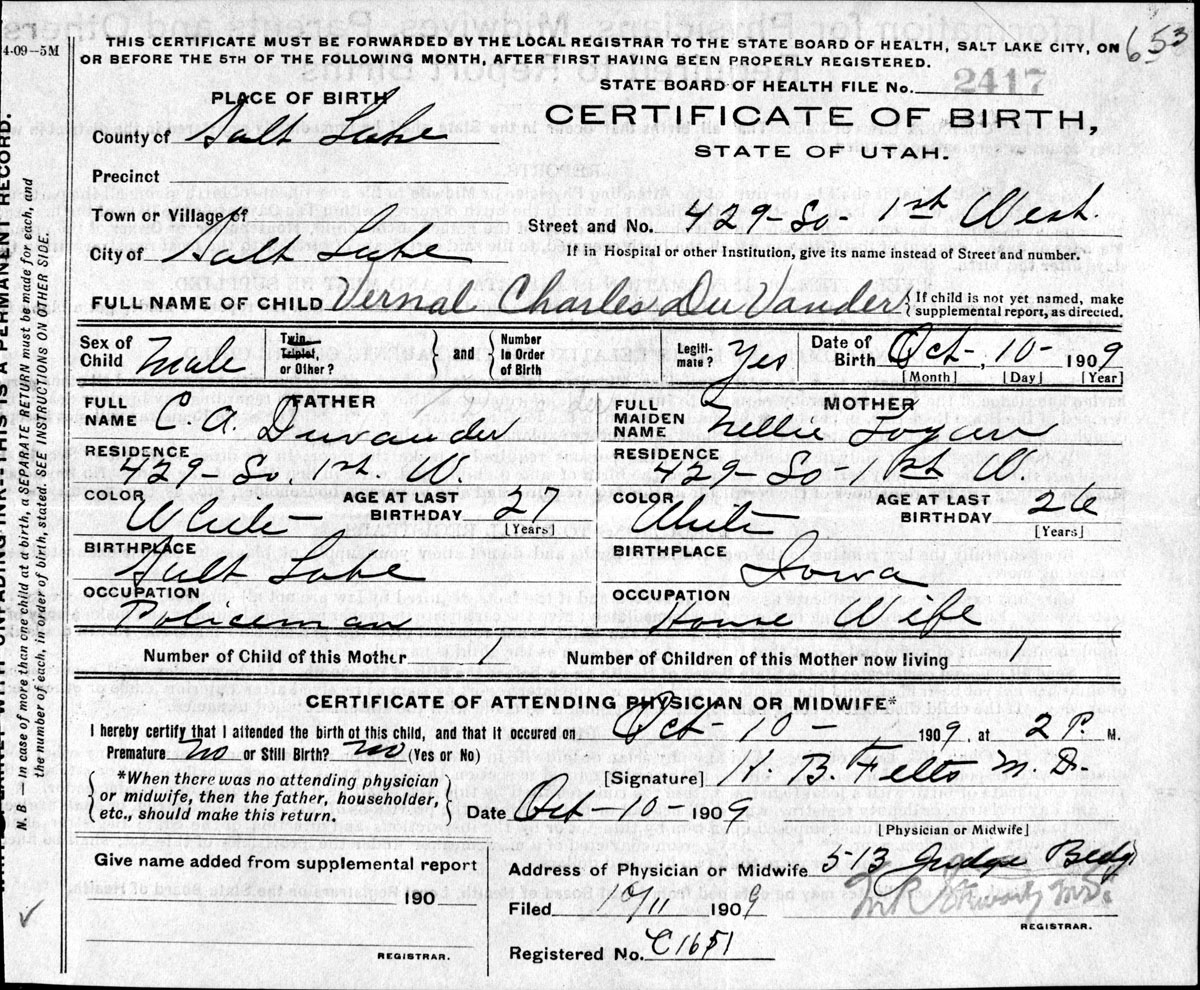 653
4-09-5M
THIS CERTIFICATE MUST BE FORWARDED BY THE LOCAL REGISTRAR TO THE STATE BOARD OF HEALTH, SALT LAKE CITY, ON
OR BEFORE THE 5TH OF THE FOLLOWING MONTH, AFTER FIRST HAVING BEEN PROPERLY REGISTERED.
STATE BOARD OF HEALTH FILE No. 2417
PLACE OF BIRTH
CERTIFICATE OF BIRTH,
STATE OF UTAH.
County of Salt Lake
Precinct
Town or Village of
Street and No. 429-So- 1st West.
City of Salt Lake
If in Hospital or other Institution, give its name instead of Street and number.
FULL NAME OF CHILD Vernal Charles Du Vander { If child is not yet named, make
supplemental report, as directed.
Sex of Child Male
Twin, Triplet, or Other? } and { Number in Order of Birth
Legiti-mate? Yes
Date of Birth Oct-, 10- 1909
[Month] [Day] [Year]
FATHER
FULL NAME C. A. Duvander
RESIDENCE
429- So. 1st W.
COLOR White
AGE AT LAST BIRTHDAY 27
[Years]
BIRTHPLACE
Salt Lake
OCCUPATION
Policeman
MOTHER
FULL MAIDEN NAME Nellie
RESIDENCE
429- So- 1st W
COLOR White
AGE AT LAST BIRTHDAY 26
[Years]
BIRTHPLACE
Iowa
OCCUPATION
House Wife
Number of Child of this Mother 1 Number of Children of this Mother now living 1
CERTIFICATE OF ATTENDING PHYSICIAN OR MIDWIFE*
I hereby certify that I attended the birth of this child, and that it occured on Oct- 10-, 1909, at 2 P. M.
Premature no or Still Birth? no (Yes or No)
{ *When there was no attending physician
or midwife, then the father, householder,
etc., should make this return. }
[Signature] B. Felts M.D.
Date Oct-10-1909
[Physician or Midwife]
Give name added from supplemental report
190
REGISTRAR.
Address of Physician or Midwife 513 Judge Bldg
Filed 10/11 1909
T.R. Stewart M.D.
REGISTRAR.
Registered No. C1651
THIS IS A PERMANENT RECORD.
N. B.—In case of more than one child at a birth, a SEPARATE RETURN must be made for each, and
the number of each, in order of birth, stated. SEE INSTRUCTIONS ON OTHER SIDE.